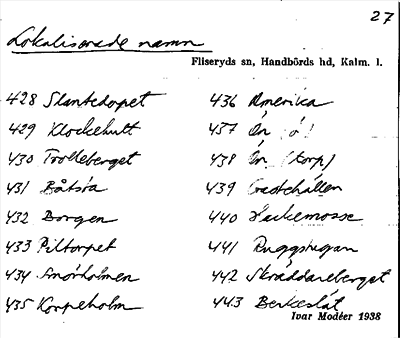 27
Lokaliserade namn
Fliseryds sn, Handbörds hd, Kalm. l.
428 Slantetorpet
429 Klockehult
430 Trolleberget
431 Båtsöa
432 Borgen
433 Piltorpet
434 Smörholmen
435 Korpeholm
436 Amerika
437 Ön
438 Ön (torp)
439
440
441 Ruggstugan
442 Skräddareberget
443 Berkeslät
Ivar Modéer 1938